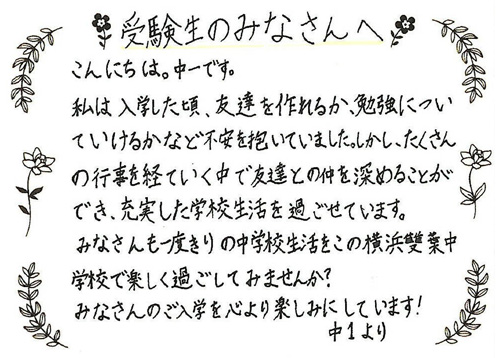 受験生のみなさんへ
こんにちは。中一です。
私は入学した頃、友達を作れるか、勉強につい
ていけるかなど不安を抱いていました。しかし、たくさん
の行事を経ていく中で友達との仲を深めることが
でき、充実した学校生活を過ごせています。
みなさんも一度きりの中学校生活をこの横浜雙葉中
学校で楽しく過ごしてみませんか?
みなさんのご入学を心より楽しみにしています!
中1より